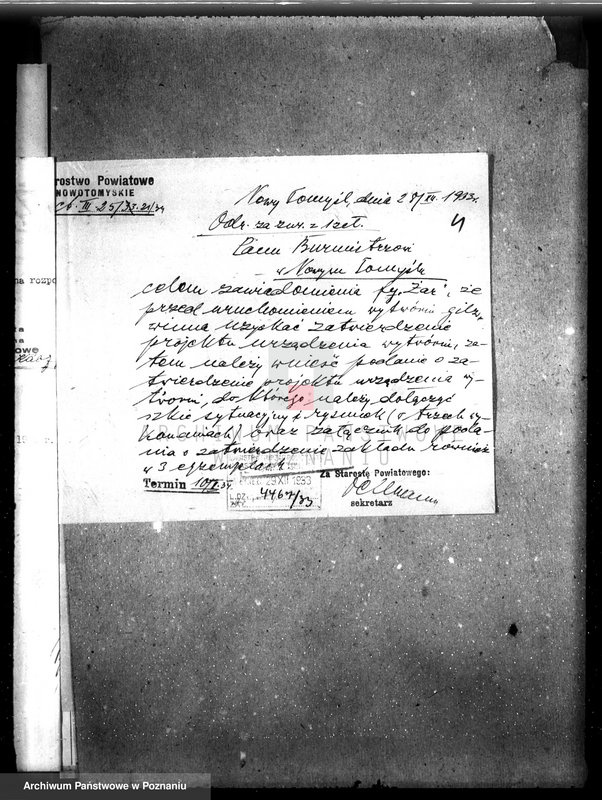 rostwo Powiatowe
NOWOTOMYSKIE
III 25/33.21/34
Nowy Tomyśl, dnia 28/XII 1933r.
4
Odr. za zwr. z 1 zał.
Panu Burmistrzowi
w Nowym Tomyślu
celem zawiadomienia fy. "Żar", że
przed uruchomieniem wytwórni gilz,
winna uzyskać zatwierdzenie
projektu urządzenia wytwórni, za-
tem należy wnieść podanie o za-
twierdzenie projektu urządzenia wy-
twórni, do którego należy dołączyć
szkic sytuacyjny i rysunek (w trzech wy-
konaniach) oraz załącznik do poda-
nia o zatwierdzenie zakładu również
w 3 egzemplach
Termin 10/I 34.
Za Starostę Powiatowego:
sekretarz
29 XII 1933
L.DZ. 4467/33
na rozpo
owe
ARCHIWUM PAŃSTWOWE
W POZNANIU
Archiwum Państwowe w Poznaniu